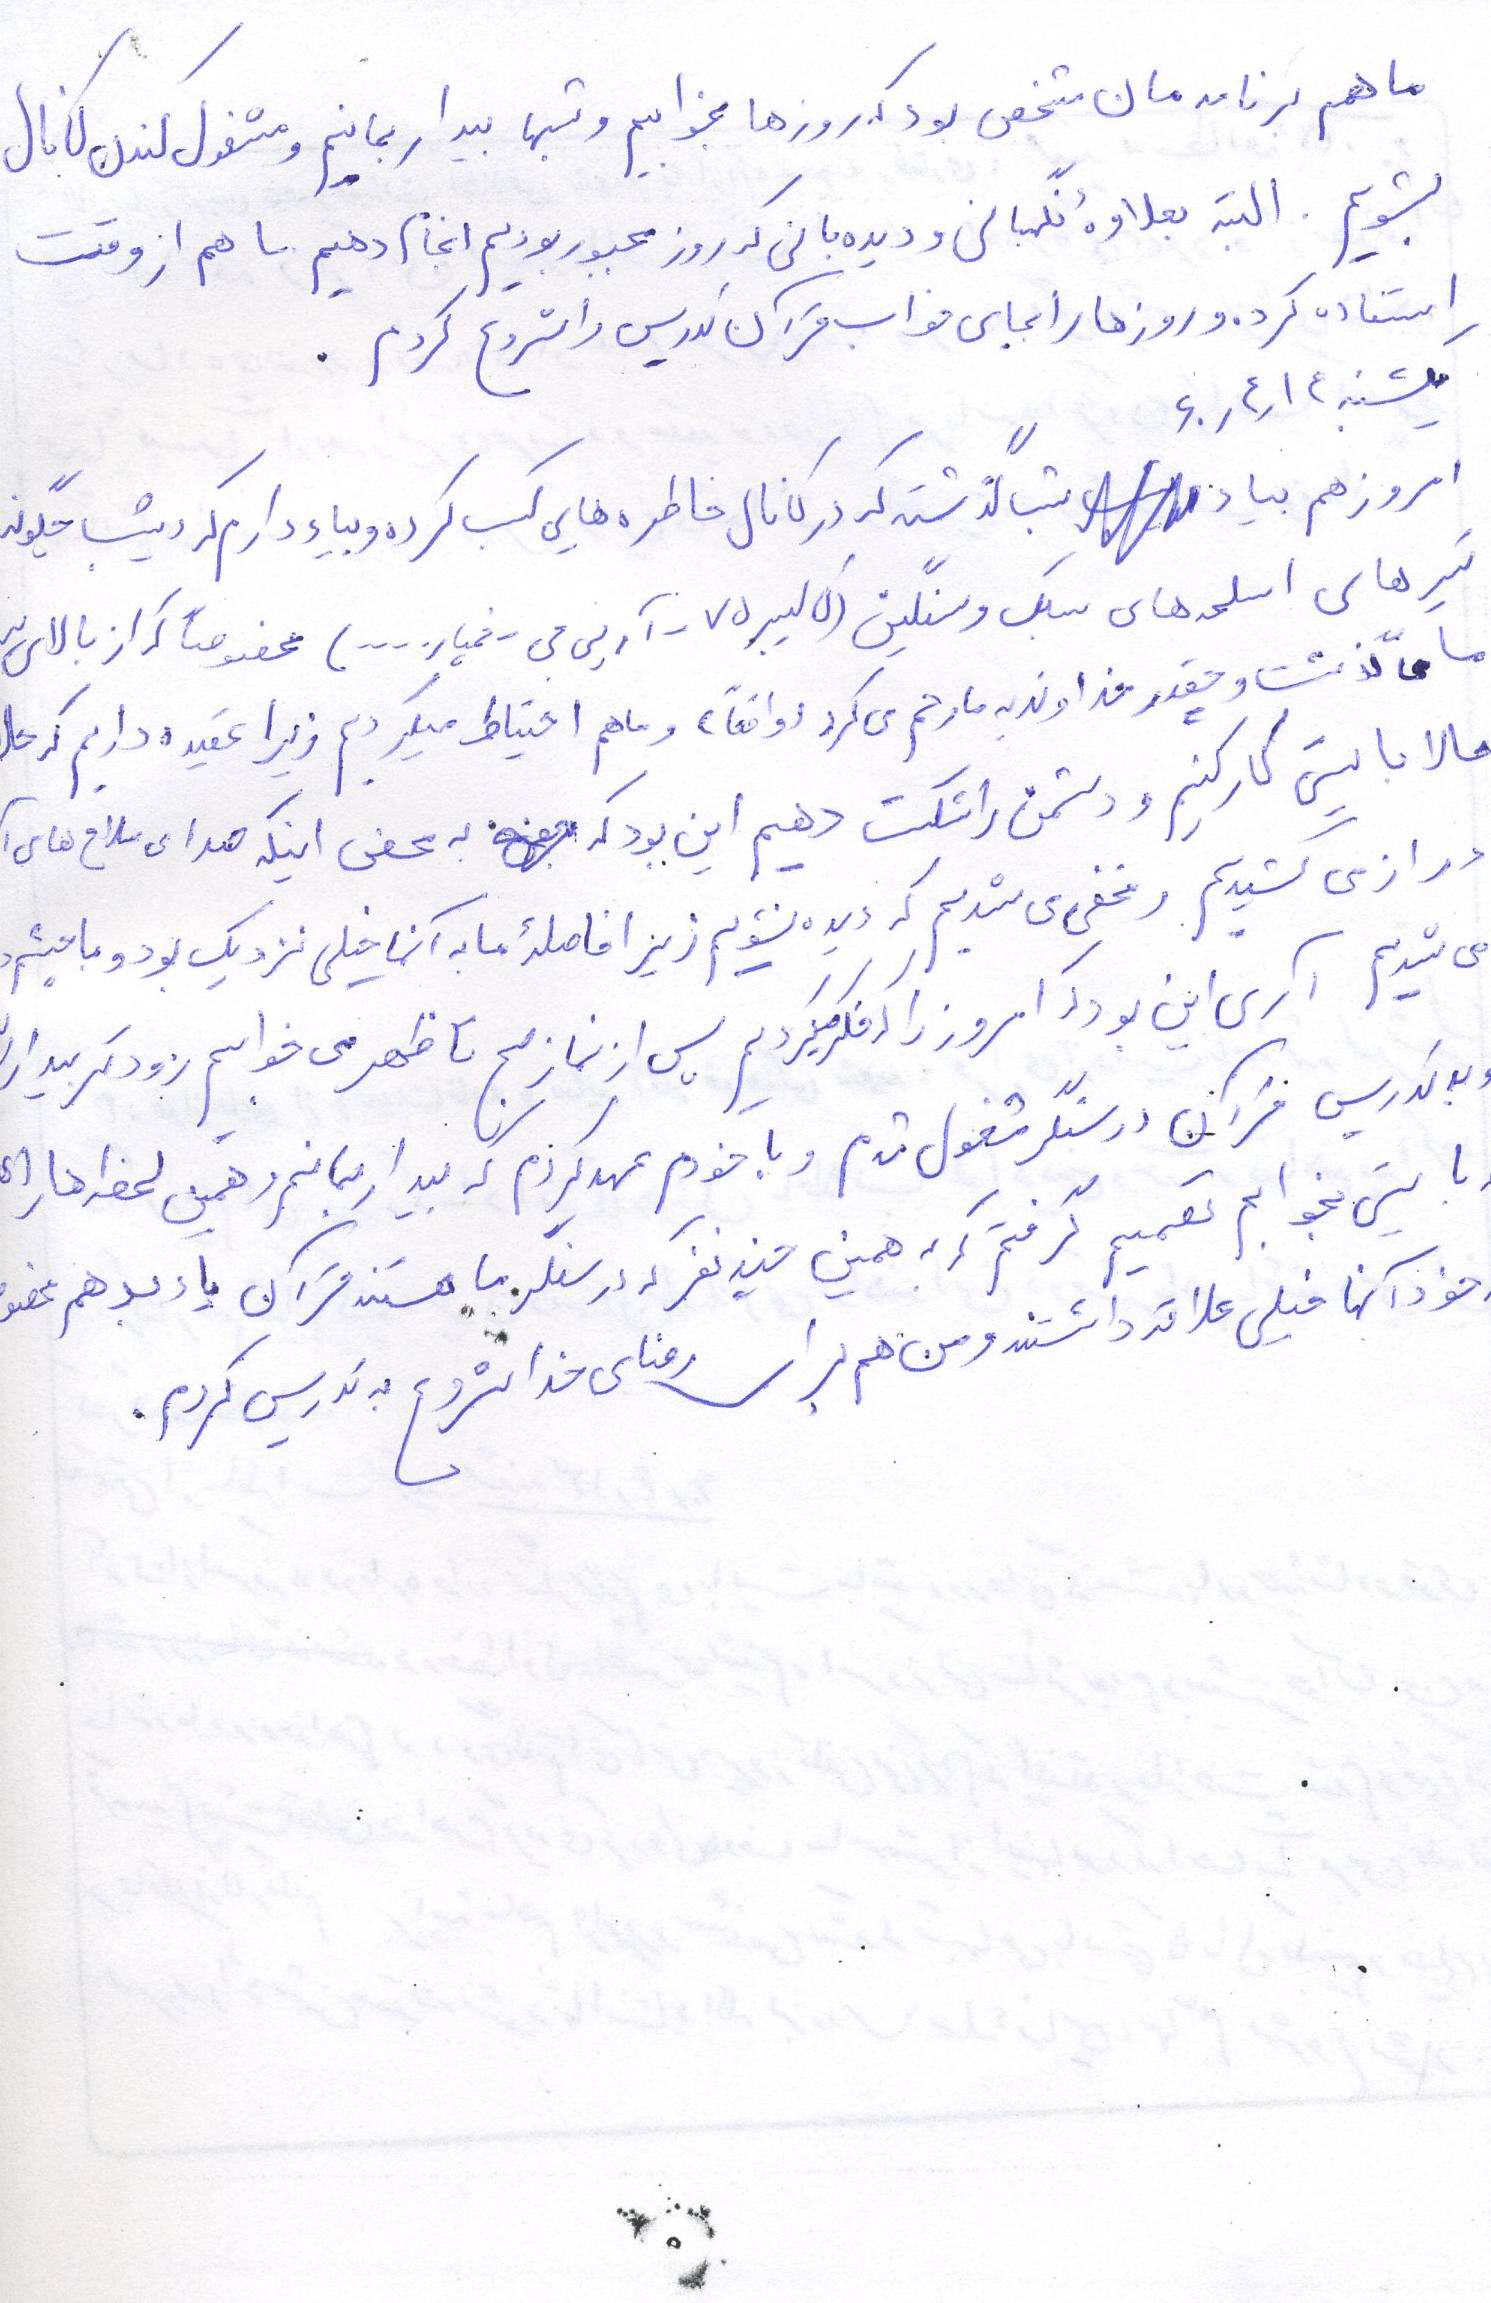 ما هم برنامه مان مشخص بود که روزها بخوابیم و شبها بیدار بمانیم و مشغول کندن کانال
بشویم . البته بعلاوهٔ نگهبانی و دیده بانی که روز مجبور بودیم انجام دهیم ما هم از وقت
استفاده کرده و روزها را بجای خواب قرآن تدریس را شروع کردم .
یکشنبه ۶۰٫۴٫۱۴
امروز هم بیاد شب گذشته که در کانال خاطره هایی کسب کرده و بیاد دارم که دیشب چگونه
تیرهای اسلحه های سبک و سنگین (کالیبر ۷۵ - آر پی جی - خمپاره ....) مخصوصاً که از بالای سر
ما گذشت و چقدر خداوند به ما رحم می کرد (واقعاً) و ما هم احتیاط میکردیم زیرا عقیده داریم که حالا
حالا بایستی کار کنیم و دشمن را شکست دهیم این بود که به محض اینکه صدای سلاح های
دراز می کشیدیم و مخفی می شدیم که دیده نشویم زیرا فاصلهٔ ما به آنها خیلی نزدیک بود و با چشم
می شدیم آری این بود که امروز را که فکر میکردیم پس از نماز صبح تا ظهر می خوابیم زودتر بیدار
و به تدریس قرآن در سنگر مشغول شدم و با خودم عهد کردم که بیدار بمانم و همین لحظه ها را
بایستی بخوابم تصمیم گرفتم که به همین چند نفر که در سنگر ما هستند قرآن یاد بدهم
خود آنها خیلی علاقه داشتند و من هم برای رضای خدا شروع به تدریس کردم .